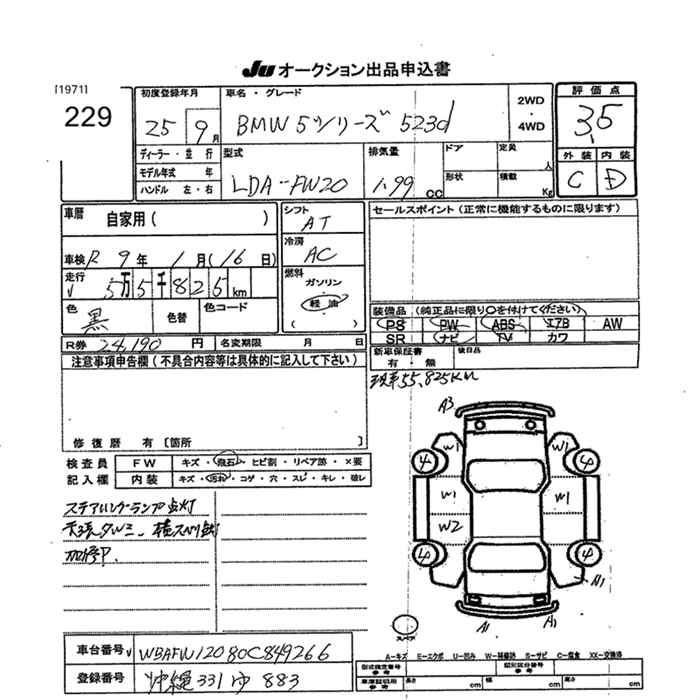 Ju オークション出品申込書
[1971]
229
初度登録年月
25 9月
車名・グレード
BMW 5シリーズ 523d
2WD
・
4WD
評価点
3.5
外装 内装
C D
ディーラー・並行
モデル年式 年
ハンドル 左・右
型式
LDA-FW20
排気量
1.99 cc
ドア
定員 人
形状
積載 Kg
車歴 自家用 ( )
車検 R 9年 1月(16日)
走行 5万5千825km
色 黒
色替
色コード
シフト
AT
冷房
AC
燃料
ガソリン
軽油
( )
セールスポイント (正常に機能するものに限ります)
装備品 (純正品に限り○を付けてください)
PS PW ABS エアB AW
SR ナビ TV カワ
R券 24,190 円
名変期限 月 日
新車保証書
有・無
後日品
注意事項申告欄 (不具合内容等は具体的に記入して下さい)
現車55,825km
修復歴 有 [箇所 ]
検査員
記入欄
FW キズ・飛石・ヒビ割・リペア跡・×要
内装 キズ・汚れ・コゲ・穴・スレ・キレ・破レ
ステアリングランプ点灯
天張タルミ、横スベリ点灯
加修P.
A3
W1 W1
4 4
W1 W1
W2
4 4
A1
A1 A1
スペア
A-キズ E-エクボ U-凹み W-補修跡 S-サビ C-腐食 XX-交換済
車台番号 WBAFW12080C849266
登録番号 沖縄 331 ゆ 883
型式指定番号
参考
類別区分番号
参考
車庫証明用
参考
長さ cm 幅 cm 高さ cm